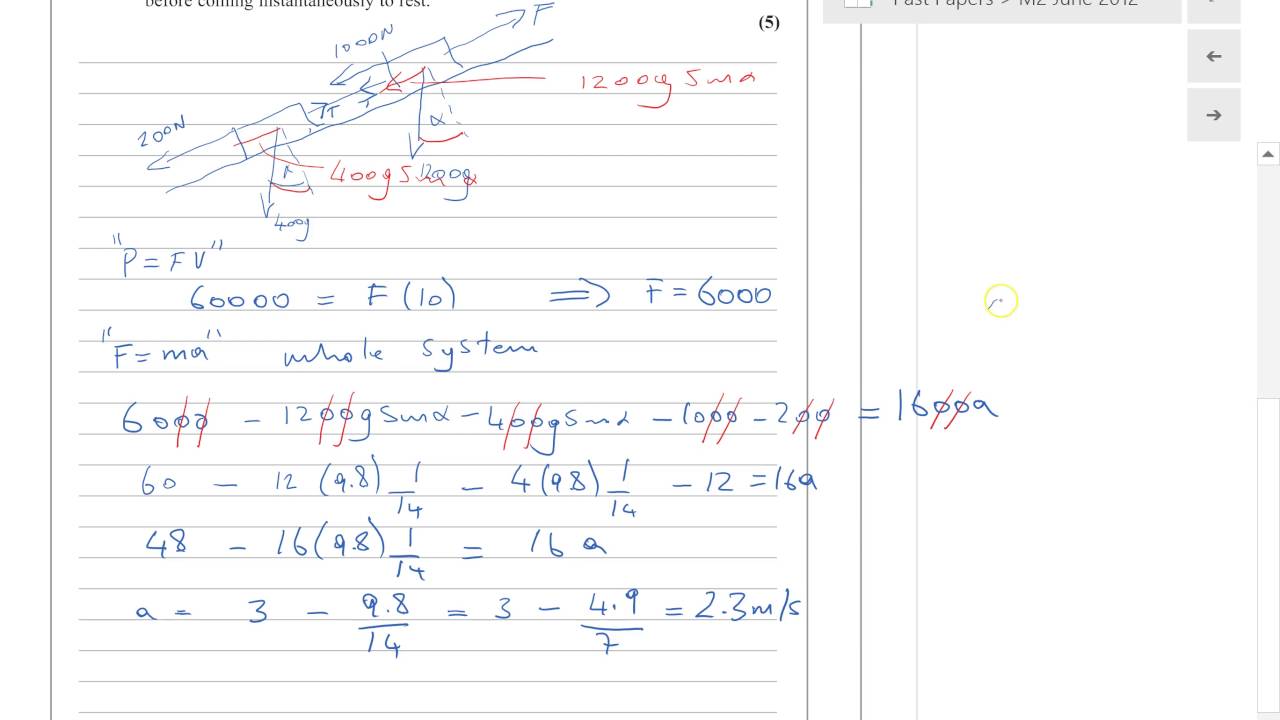 before coming instantaneously to rest.
Past Papers > M2 June 2012
(5)
F
1000N
1200g Sinα
T
200N
α
400g Sinα
1200g
400g
"P = FV"
60000 = F (10) ⟹ F = 6000
"F = ma" whole system
6000 - 1200g sinα - 400g sinα - 1000 - 200 = 1600a
60 - 12 (9.8) 1/14 - 4(9.8) 1/14 - 12 = 16a
48 - 16(9.8) 1/14 = 16 a
a = 3 - 9.8/14 = 3 - 4.9/7 = 2.3m/s